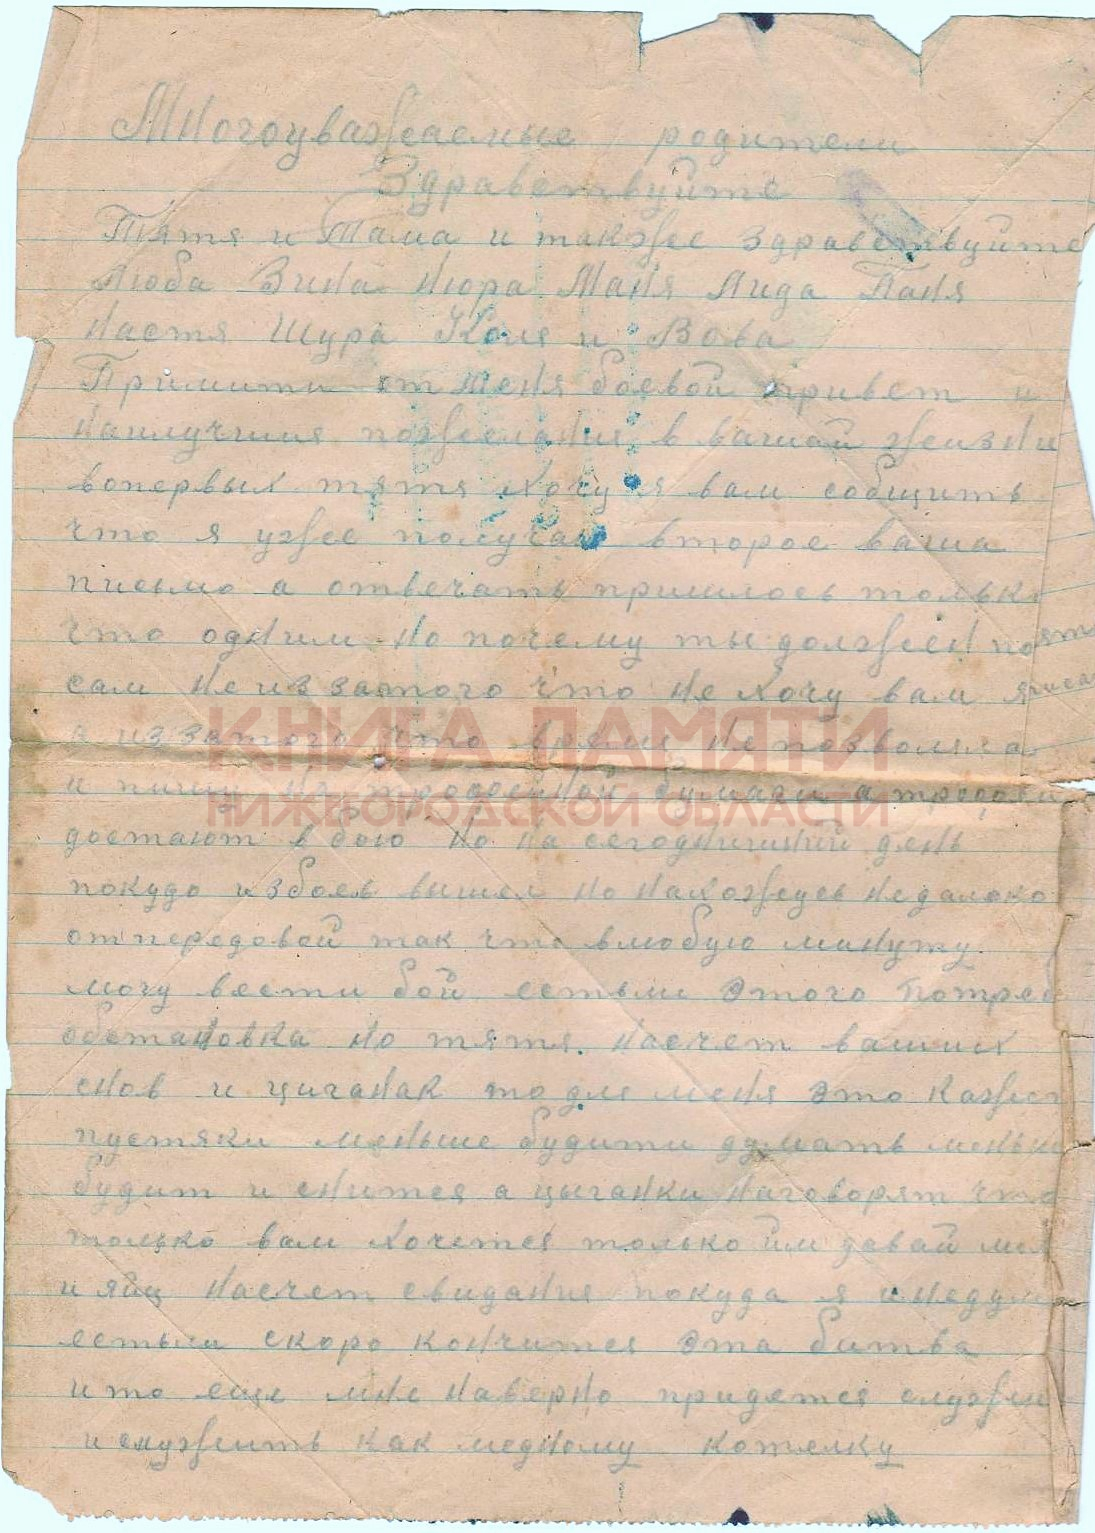 Многоуважаемые родители
Здравствуйте
Тятя и Мама и также здравствуйте
Люба Зина Нюра Маня Лида Паня
Настя Шура Коля и Вова
Примити от меня боевой привет и
наилучшия пожелания в вашай жизни
вопервых тятя хочу я вам собщить
что я уже получаю второе ваша
письмо а отвечать пришлось только
что одним но почему ты должен понять
сам не иззатого что не хочу вам писать
а иззатого что время не позволяла
и пишу на трофейной бумаги а трофеи
достают в бою но на сегоднишний день
покудо избоев вышел но нахожусь недалеко
от передовой так что влюбую минуту
могу вести бой естьли этого потреб
обстановка но тятя насчет ваших
снов и циганак то для меня это кажет
пустяки меньше будити думать меньше
будит и снится а цыганки наговорят что
только вам хочется только им давай мол
и яиц насчет свидания покуда я и недума
естьли скоро кончится эта битва
и то еще мне наверно придется служи
и служить как медному котелку
КНИГА ПАМЯТИ
НИЖЕГОРОДСКОЙ ОБЛАСТИ